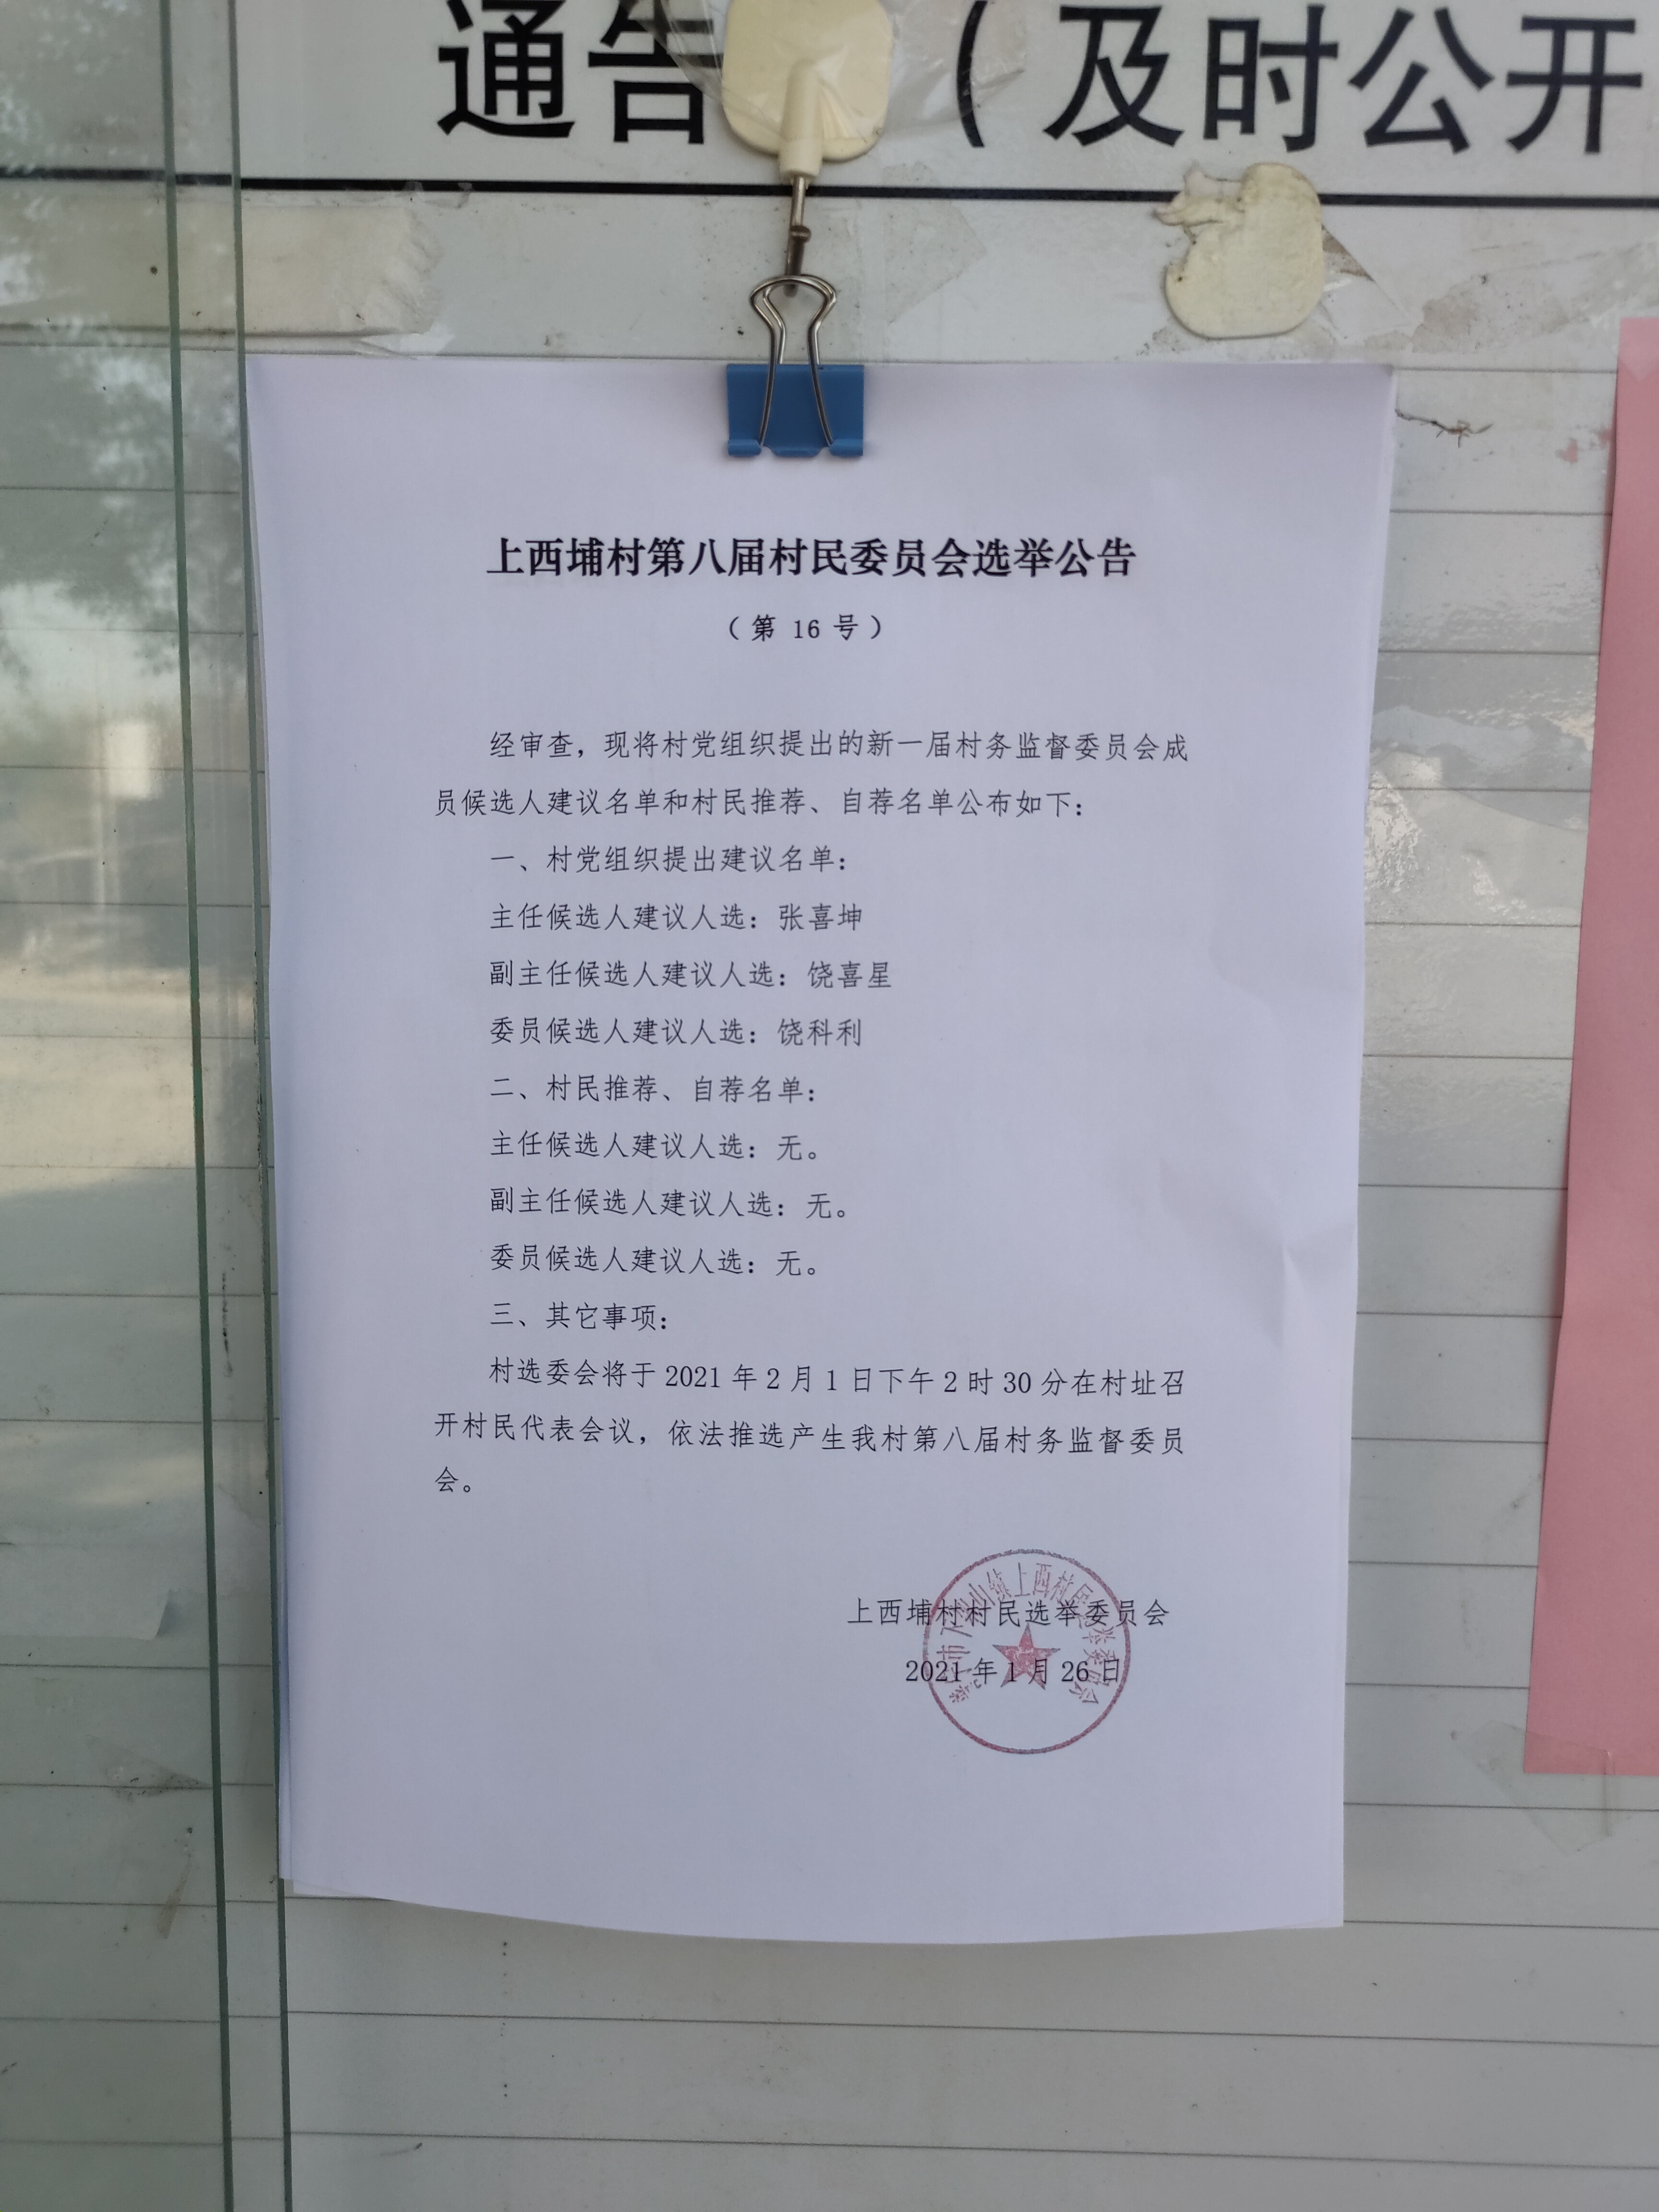 通告
（及时公开
上西埔村第八届村民委员会选举公告
（第 16 号）
经审查，现将村党组织提出的新一届村务监督委员会成
员候选人建议名单和村民推荐、自荐名单公布如下：
一、村党组织提出建议名单：
主任候选人建议人选：张喜坤
副主任候选人建议人选：饶喜星
委员候选人建议人选：饶科利
二、村民推荐、自荐名单：
主任候选人建议人选：无。
副主任候选人建议人选：无。
委员候选人建议人选：无。
三、其它事项：
村选委会将于 2021 年 2 月 1 日下午 2 时 30 分在村址召
开村民代表会议，依法推选产生我村第八届村务监督委员
会。
上西埔村村民选举委员会
2021 年 1 月 26 日